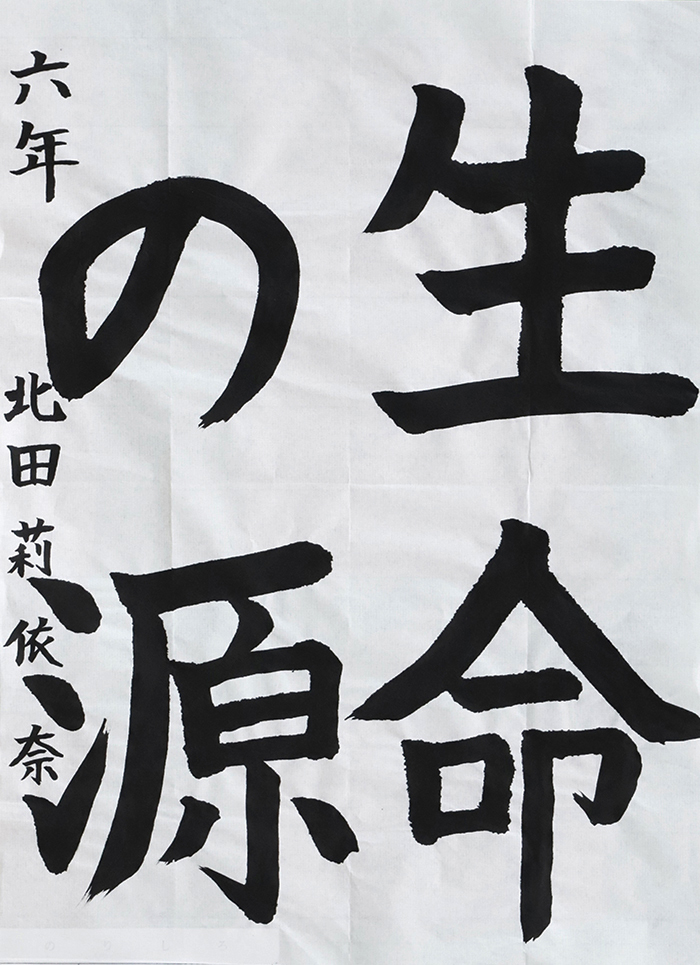 生命
の源
六年 北田莉依奈